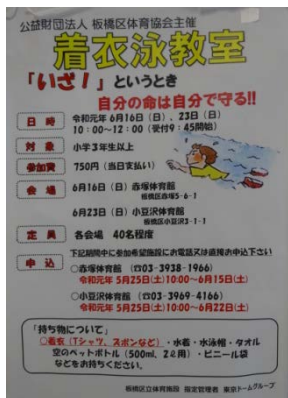 公益財団法人 板橋区体育協会主催
着衣泳教室
「いざ!」というとき
自分の命は自分で守る!!
日時 令和元年 6月16日(日)、23日(日)
10:00~12:00(受付9:45開始)
対象 小学3年生以上
参加費 750円(当日支払い)
会場 6月16日(日)赤塚体育館
板橋区赤塚5-6-1
6月23日(日)小豆沢体育館
板橋区小豆沢3-1-1
定員 各会場 40名程度
下記期間中に参加希望施設にお電話又は直接お申込下さい
申込 ○赤塚体育館 (☎03-3938-1966)
令和元年 5月25日(土)10:00~6月15日(土)
○小豆沢体育館 (☎03-3969-4166)
令和元年 5月25日(土)10:00~6月22日(土)
「持ち物について」
○着衣(Tシャツ、ズボンなど)・水着・水泳帽・タオル
空のペットボトル(500ml、2ℓ用)・ビニール袋
などをお持ちください。
板橋区立体育施設 指定管理者 東京ドームグループ